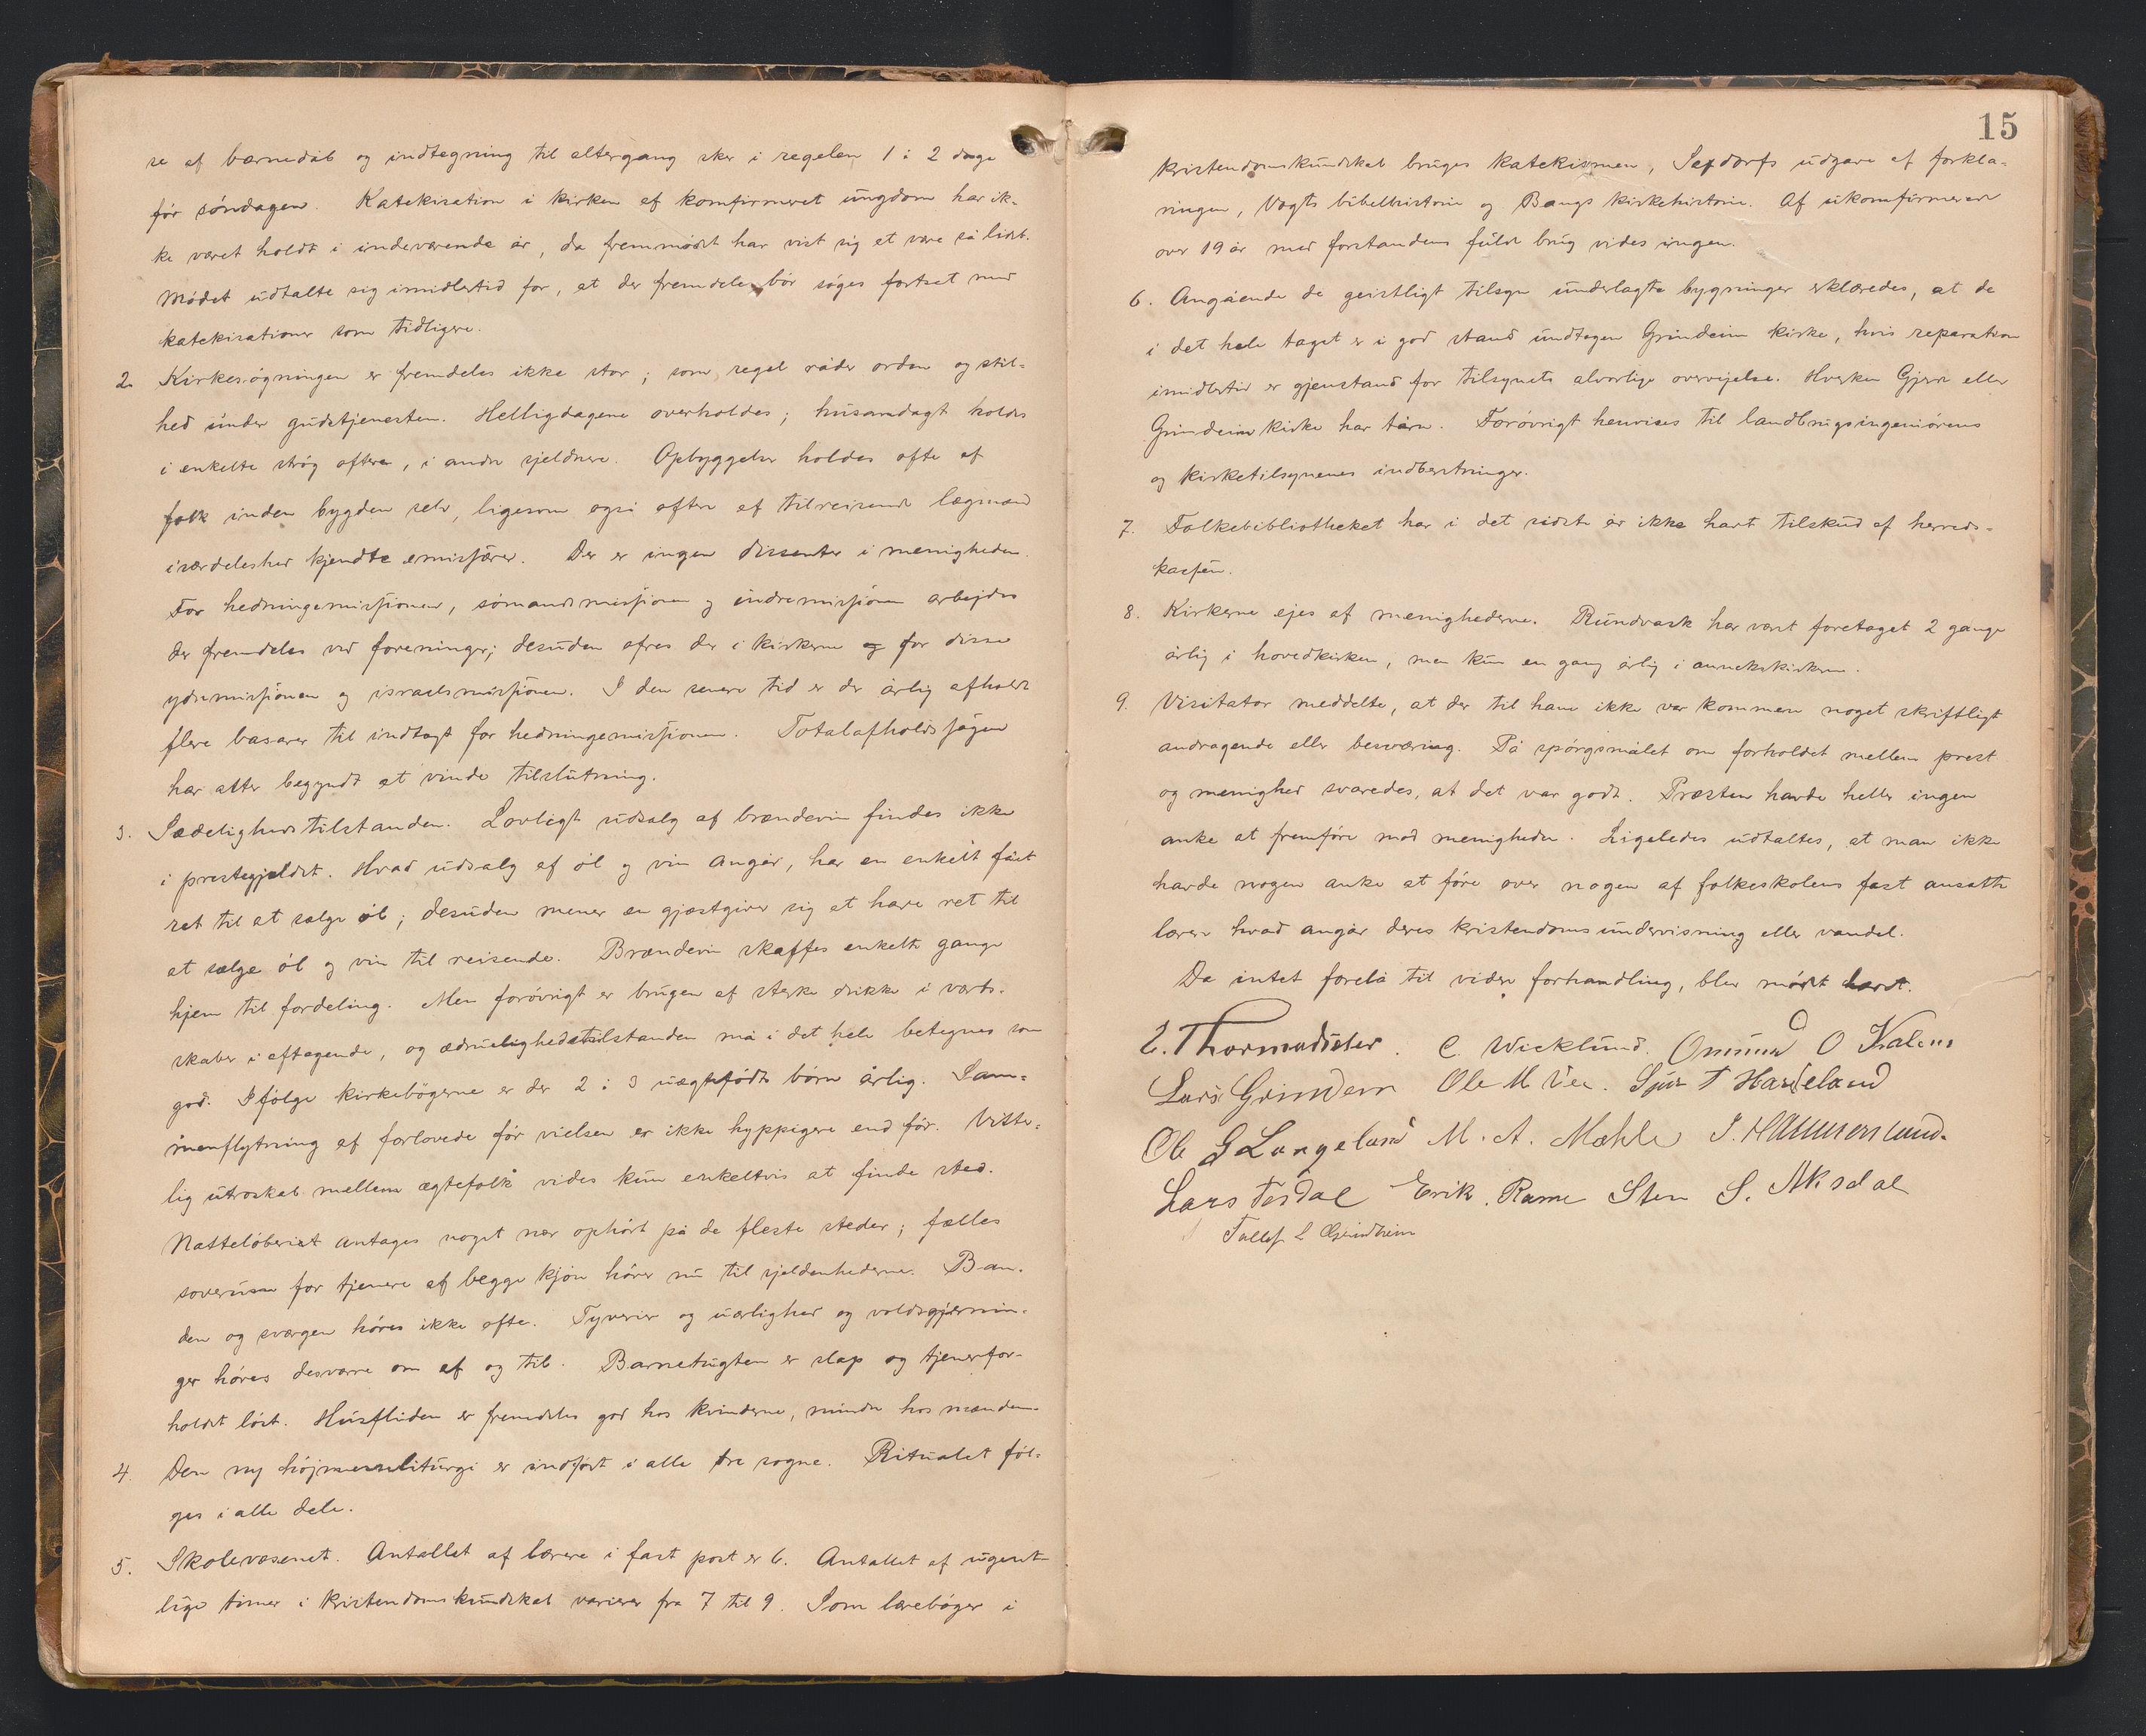 se af barnedåb og indtegning til altergang sker i regelen 1 à 2 dage
før søndagen. Katekisation i kirken af komfirmeret ungdom har ik-
ke været holdt i indeværende år, da fremmødet har vist sig at være så lidet.
Mødet udtalte sig imidlertid for, at der fremdeles bør søges fortsat med
katekisationer som tidligere.
2. Kirkesøgningen er fremdeles ikke stor; som regel råder orden og stil-
hed under gudstjenesten. Helligdagene overholdes; husandagt holdes
i enkelte strøg oftere, i andre sjeldnere. Opbyggelser holdes ofte af
folk inden bygden selv, ligesom også oftere af tilreisende lægmænd
isærdeleshed kjendte emissærer. Der er ingen dissenter i menigheden.
For hedningemissionen, sømandsmissionen og indremissionen arbejdes
der fremdeles ved foreninger; desuden ofres der i kirkerne og for disse
ydremissionen og israelsmissionen. I den senere tid er der årlig afholdt
flere basarer til indtægt for hedningemissionen. Totalafholdssagen
har atter begyndt at vinde tilslutning.
3. Sædelighedstilstanden. Lovligt udsalg af brændevin findes ikke
i prestegjeldet. Hvad udsalg af øl og vin angår, har en enkelt fået
ret til at sælge øl; desuden mener en gjæstgiver sig at have ret til
at sælge øl og vin til reisende. Brændevin skaffes enkelte gange
hjem til fordeling. Men forøvrigt er brugen af sterke drikke i værts-
skaber i aftagende, og ædruelighedstilstanden må i det hele betegnes som
god. Ifølge kirkebøgerne er der 2 à 3 uægtefødte børn årlig. Sam-
menflytning af forlovede før vielsen er ikke hyppigere end før. Vitter-
lig utroskab mellem ægtefolk vides kun enkeltvis at finde sted.
Natteløberiet antages noget nær ophørt på de fleste steder; fælles
soverum for tjenere af begge kjøn hører nu til sjeldenhederne. Ban-
den og sværgen høres ikke ofte. Tyverier og uærlighed og voldsgjernin-
ger høres desværre om af og til. Barnetugten er slap og tjenerfor-
holdet løst. Husfliden er fremdeles god hos kvinderne, mindre hos mændene.
4. Den ny højmesseliturgi er indført i alle tre sogne. Ritualet føl-
ges i alle dele.
5. Skolevæsenet. Antallet af lærere i fast post er 6. Antallet af ugent-
lige timer i kristendomskundskab varierer fra 7 til 9. Som lærebøger i
15
kristendomskundskab bruges katekismen, Sexdorfs udgave af forkla-
ringen, Vogts bibelhistorie og Bangs kirkehistorie. Af ukomfirmerede
over 19 år med forstandens fulde brug vides ingen.
6. Angående de geistligt tilsyn underlagte bygninger erklæredes, at de
i det hele taget er i god stand undtagen Grindeim kirke, hvis reparation
imidlertid er gjenstand for tilsynets alvorlige overvejelse. Hverken Gjerde eller
Grindeim kirke har tårn. Forøvrigt henvises til landbrugsingeniørens
og kirketilsynenes indberetninger.
7. Folkebibliotheket har i det sidste år ikke havt tilskud af herreds-
kassen.
8. Kirkerne ejes af menighederne. Rundvask har været foretaget 2 gange
årlig i hovedkirken, men kun en gang årlig i annekskirkerne.
9. Visitator meddelte, at der til ham ikke var kommen noget skriftligt
andragende eller besværing. På spørgsmålet om forholdet mellem prest
og menighed svaredes, at det var godt. Præsten havde heller ingen
anke at fremføre mod menigheden. Ligeledes udtaltes, at man ikke
havde nogen anke at føre over nogen af folkeskolens fast ansatte
lærere hvad angår deres kristendomsundervisning eller vandel.
Da intet forelå til videre forhandling, blev mødet hævet.
E. Thormodsæter. C. Wicklund. Ommund O
Lars Grindem Ole M Vee. Sjur T Handeland
Ole G Langeland M. A. Mæhle J. Hammersland.
Lars Tesdal Erik. Rame Sten S. Aksdal
Tollef L Grindheim